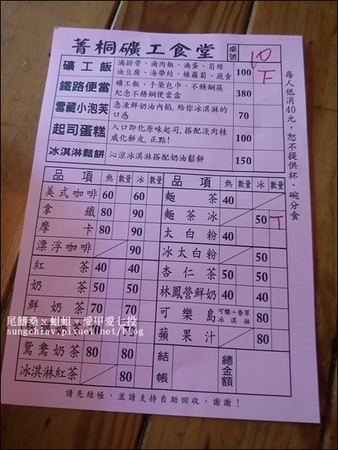 菁桐礦工食堂
桌號 10
F
礦工飯 滷排骨、滷肉飯、滷蛋、筍絲
油豆腐、海帶結、辣蘿蔔、蔬食 100
鐵路便當 礦工飯、手染包巾、不銹鋼筷
紀念不銹鋼便當盒 380
雪藏小泡芙 急凍鮮奶油內餡,給你冰淇淋的
口感 70
起司蛋糕 入口即化原味起司,搭配淡肉桂
威化餅皮,正點! 100
冰淇淋鬆餅 沁涼冰淇淋搭配奶油鬆餅 150
每人低消40元,恕不提供杯、碗分食
品項 熱 數量 冰 數量 品項 熱 數量 冰 數量
美式咖啡 60 60 麵茶 40
拿鐵 80 90 麵茶冰 50 T
摩卡 80 90 太白粉 40
漂浮咖啡 90 冰太白粉 50
紅茶 40 40 杏仁茶 50
奶茶 林鳳營鮮奶 40
鮮奶 可樂島 可樂+香草
冰淇淋 80
蘋果汁 80
鴛鴦奶茶 80 結帳 總金額
冰淇淋紅茶 80
請先結帳,並請支持自助回收,謝謝!
尾鰭桑x蛆蛆。愛甲愛七投
sungchiav.pixnet.net/blog